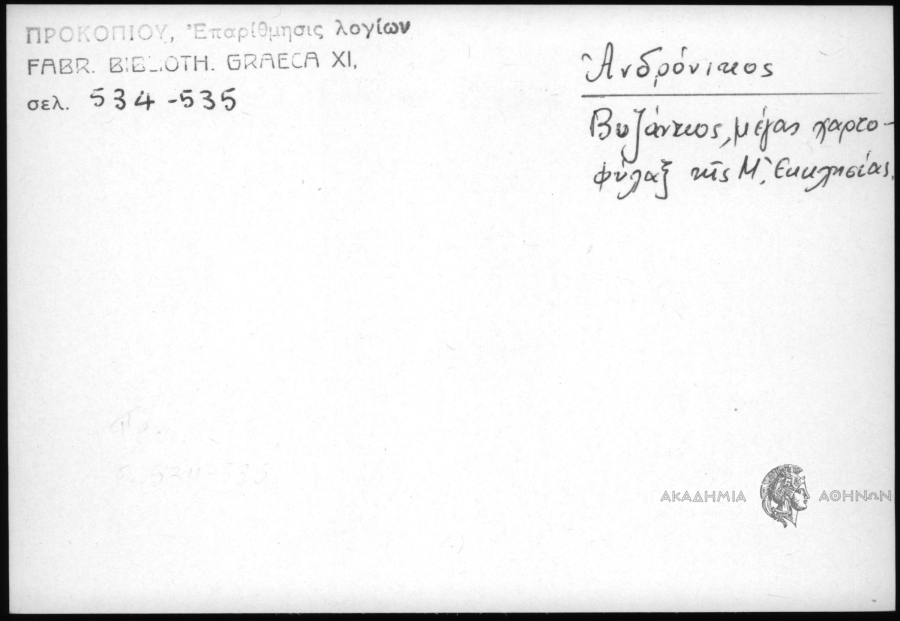 ΠΡΟΚΟΠΙΟΥ, Ἐπαρίθμησις λογίων
FABR. BIBLIOTH. GRAECA XI,
σελ. 534-535
Ἀνδρόνικος
Βυζάντιος, μέγας χαρτο-
φύλαξ τῆς Μ. Ἐκκλησίας.
F. 534-535
ΑΚΑΔΗΜΙΑ ΑΘΗΝΩΝ